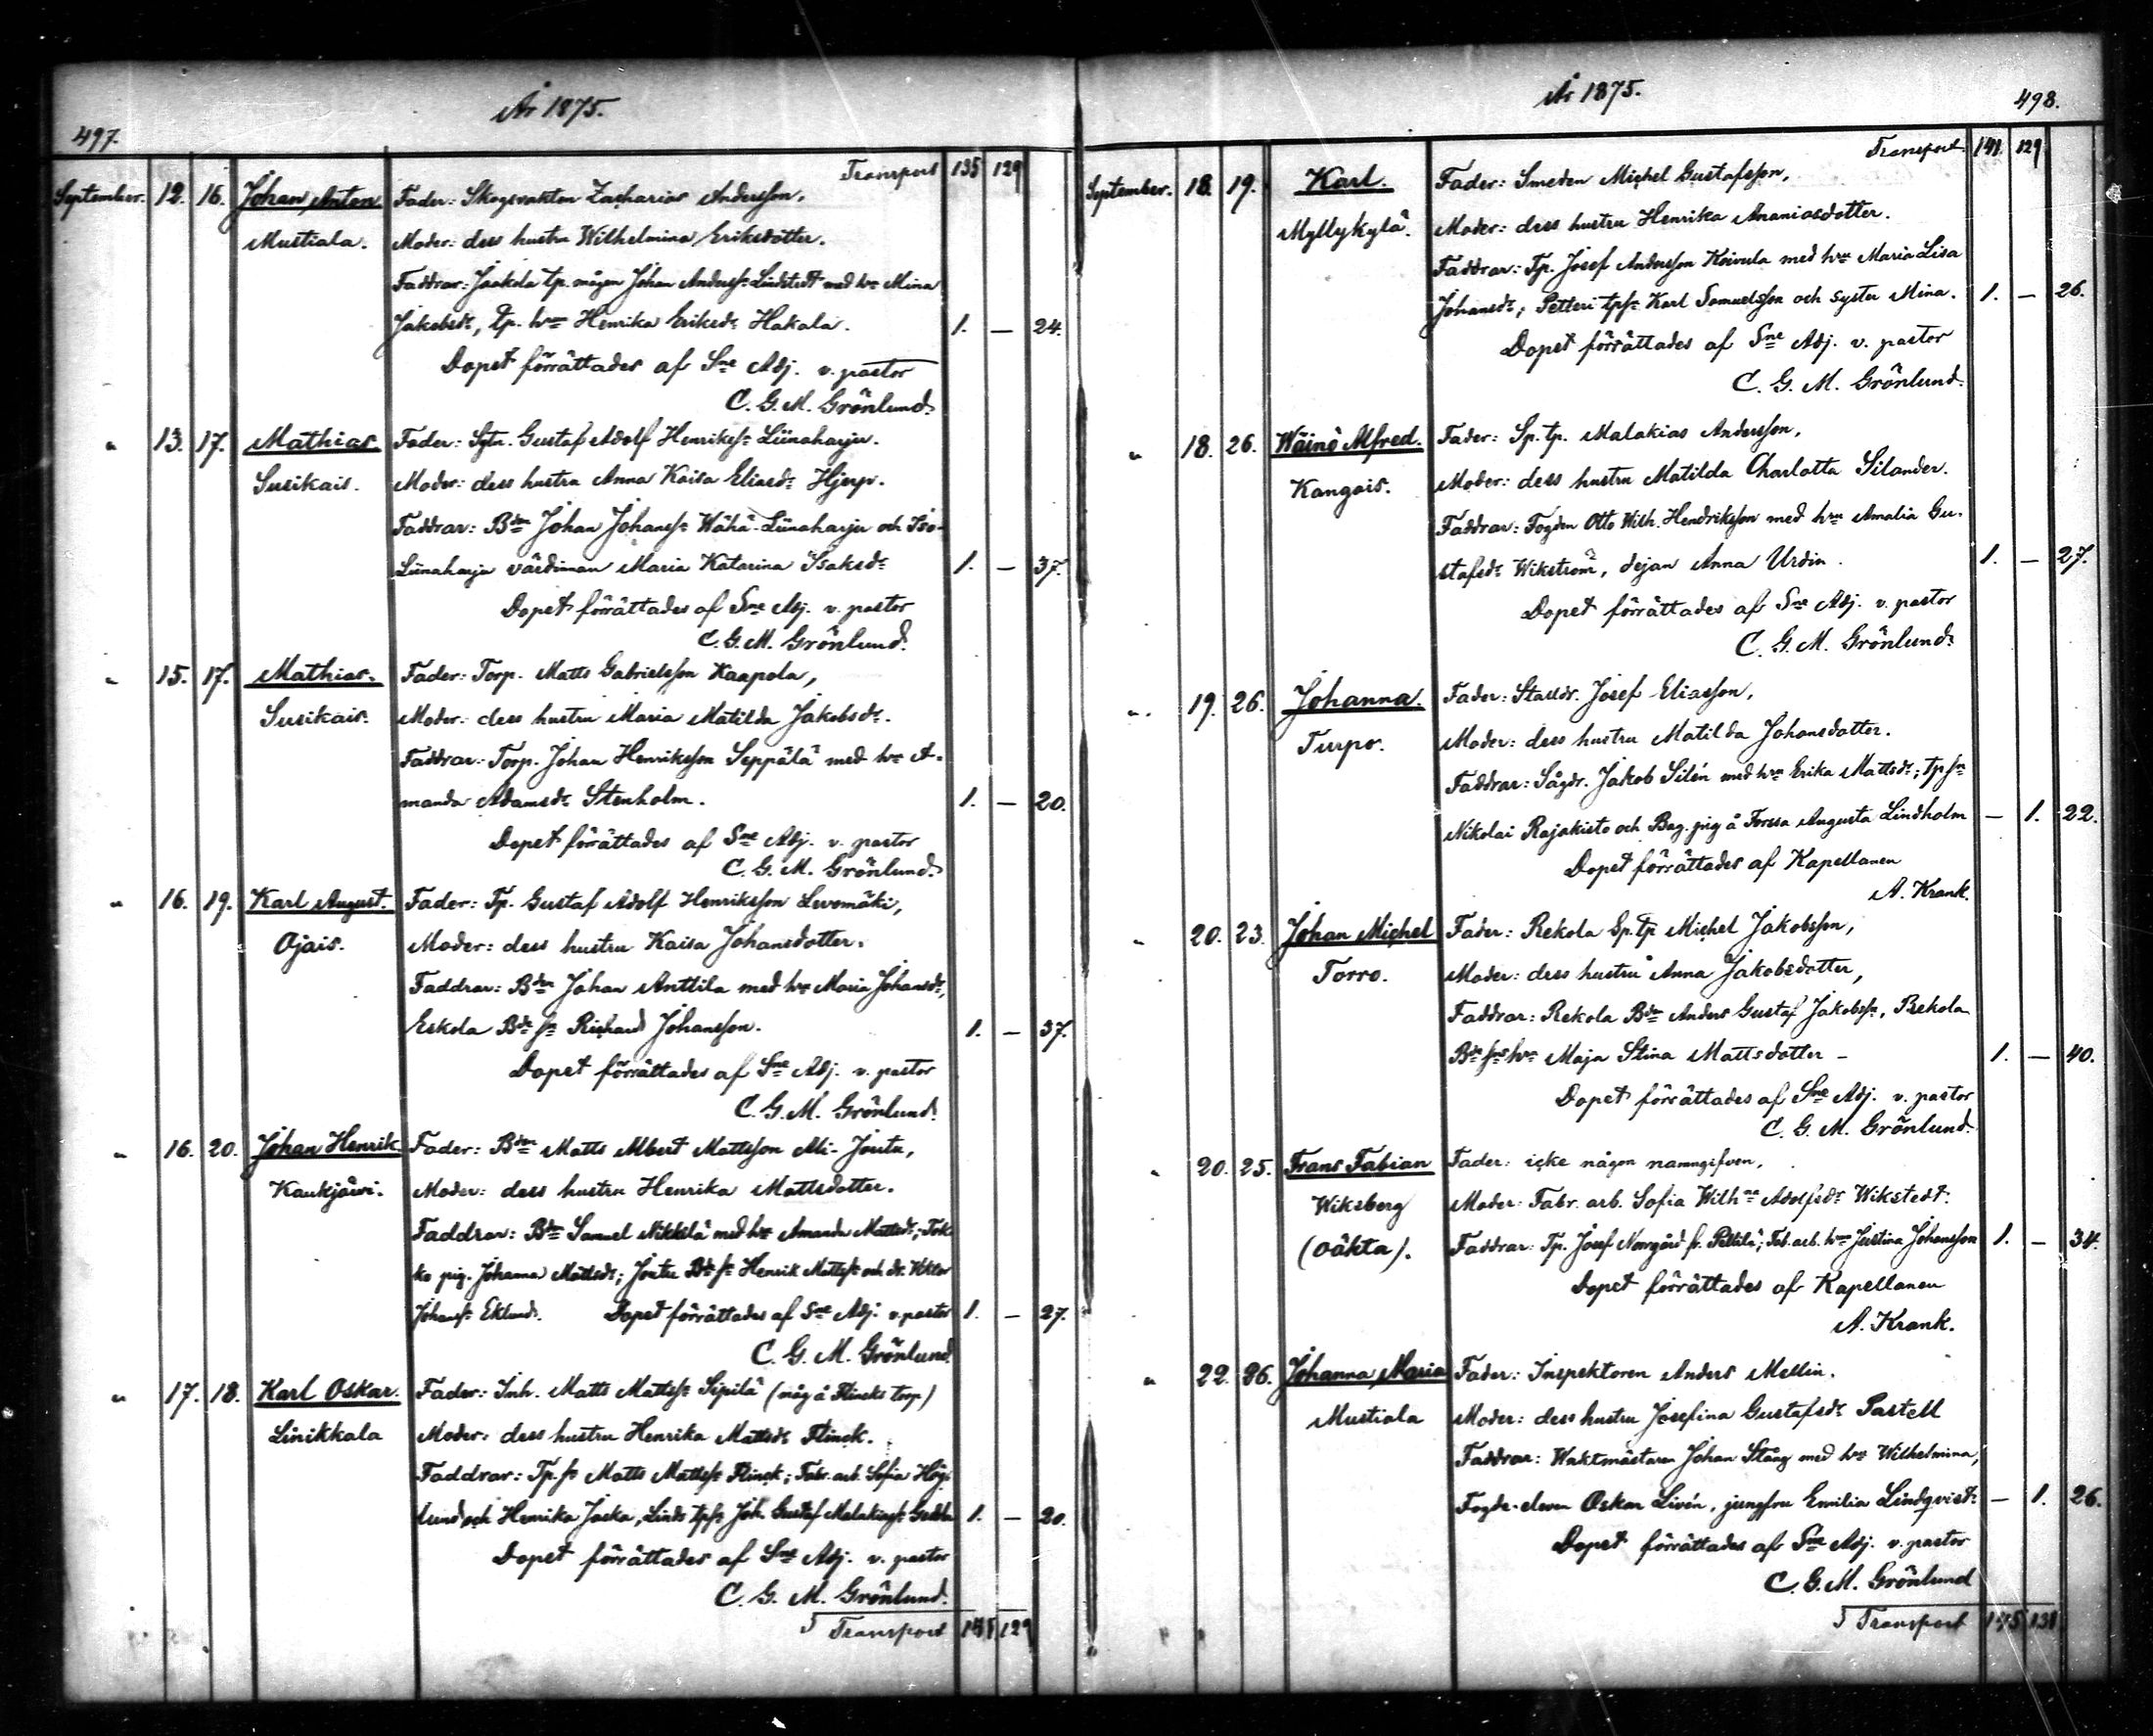 År 1875.
497.
Transport 135 129
September. 12. 16. Johan Anton Fader: Skogsvakten Zacharias Andersson,
Mustiala. Moder: dess hustru Wilhelmina Eriksdotter.
Faddrar: Jaakola tp. mågen Johan Anderss: Lindstedt med hn Mina
Jakobsdr, Tp. hn Henrika Eriksdr Hakala. 1. — 24.
Dopet förrättades af Sne Adj. v. pastor
C. G. M. Grönlund.
" 13. 17. Mathias. Fader: Sytn. Gustaf Adolf Henrikss: Liinaharju.
Susikais. Moder: dess hustru Anna Kaisa Eliasdr Hjerp.
Faddrar: Bdn Johan Johanss: Wähä-Liinaharju och Iso-
Liinaharju värdinnan Maria Katarina Isaksdr 1. — 37.
Dopet förrättades af Sne Adj. v. pastor
C. G. M. Grönlund.
" 15. 17. Mathias. Fader: Torp. Matts Gabrielsson Kaapola,
Susikais. Moder: dess hustru Maria Matilda Jakobsdr.
Faddrar: Torp. Johan Henriksson Seppälä med hn A-
manda Adamsdr Stenholm. 1. — 20.
Dopet förättades af Sne Adj. v. pastor
C. G. M. Grönlund.
" 16. 19. Karl August. Fader: Tp. Gustaf Adolf Henriksson Levomäki,
Ojais. Moder: dess hustru Kaisa Johansdotter.
Faddrar: Bdn Johan Anttila med hn Maria Johansdr,
Eskola Bds sn Richard Johansson. 1. — 37.
Dopet förrättades af Sne Adj. v. pastor
C. G. M. Grönlund.
" 16. 20. Johan Henrik. Fader: Bdn Matts Albert Mattsson Ali-Jouta,
Kaukjärvi. Moder: dess hustru Henrika Mattsdotter.
Faddrar: Bdn Samuel Nikkilä med hn Amanda Mattsdr;
pig. Johanna Mattsdr; Joutu Bds sn Henrik Mattss: och dr. Viktor
Johanss: Eklund. Dopet förrättades af Sne Adj. v. pastor 1. — 27.
C. G. M. Grönlund.
" 17. 18. Karl Oskar. Fader: Inh. Matts Mattss: Sipilä (måg å Flincks torp)
Linikkala Moder: dess hustru Henrika Mattsdr Flinck.
Faddrar: Tp. sn Matts Mattss: Flinck; Fabr. arb. Sofia Hög-
lund och Henrika Jaska, Linds tpsn Joh. Gustaf Malakiass: 1. — 20.
Dopet förrättades af Sne Adj. v. pastor
C. G. M. Grönlund.
Transport 141 129
År 1875.
498.
Transport 141 129
September. 18. 19. Karl. Fader: Smeden Michel Gustafsson,
Myllykylä. Moder: dess hustru Henrika Ananiasdotter.
Faddrar: Tp. Josef Andersson Koivula med hn Maria Lisa
Johansdr, Petteri tpsn Karl Samuelsson och syster Mina. 1. — 26.
Dopet förrättades af Sne Adj. v. pastor
C. G. M. Grönlund.
" 18. 26. Wäinö Alfred. Fader: Sp. tp. Malakias Andersson,
Kangais. Moder: dess hustru Matilda Charlotta Silander.
Faddrar: Fogden Otto Wilh. Hendriksson med hn Amalia Gu-
stafsdr Wikström, dejan Anna Urdin. 1. — 27.
Dopet förrättades af Sne Adj. v. pastor
C. G. M. Grönlund.
" 19. 26. Johanna. Fader: Stalldr. Josef Eliasson,
Turpo. Moder: dess hustru Matilda Johansdotter.
Faddrar: Sågdr. Jakob Silén med hn Erika Mattsdr; tpsn
Nikolai Rajakisto och Bag. pig å Forssa Augusta Lindholm — 1. 22.
Dopet förrättades af Kapellanen
A. Krank.
" 20. 23. Johan Michel Fader: Rekola Sp. tp. Michel Jakobsson,
Torro. Moder: dess hustru Anna Jakobsdotter,
Faddrar: Rekola Bdn Anders Gustaf Jakobss:, Rekola
Bds sns hn Maja Stina Mattsdotter - 1. — 40.
Dopet förrättades af Sne Adj. v. pastor
C. G. M. Grönlund.
" 20. 25. Frans Fabian Fader: icke någon namngifven,
Wiksberg Moder: Fabr. arb. Sofia Wilhna Adolfsdr Wikstedt.
(oäkta). Faddrar: Tp. Josef Norrgård fr. Peltilä; Fab. arb. hn Justina Johansson 1. — 34.
Dopet förrättades af Kapellanen
A. Krank.
" 22. 26. Johanna Maria Fader: Inspektoren Anders Mellin.
Mustiala Moder: dess hustru Josefina Gustafsdr Pastell
Faddrar: Waktmästaren Johan Stång med hn Wilhelmina,
Fogde-eleven Oskar Livén, jungfru Emilia Lindqvist. — 1. 26.
Dopet förrättades af Sne Adj. v. pastor
C. G. M. Grönlund
Transport 145 131